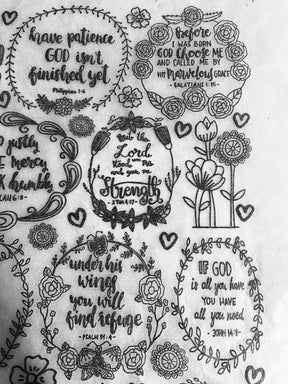 have patience
GOD isn't
finished yet
Philippians 1:6
Before
I WAS BORN
GOD Choose ME
AND CALLED ME BY
HIS Marvelous GRACE
- GALATIANS 1:15 -
justly
mercy
humbly
6:8 -
But the
Lord
stood with me
and gave me
Strength
- 2 TIM 4:17 -
under his
wings
you will
find refuge
- PSALM 91:4 -
IF GOD
is all you have
YOU HAVE
all you need
- JOHN 14:8 -